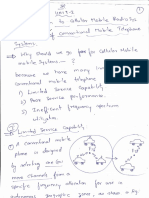 UNIT-I
①
to Cellular Mobile Radio Sys
of Conventional Mobile Telephone
Systems.
Why should we go for Cellular Mobile
mobile Systems — ?
because we have many limit
conventional mobile telephone
1) Limited Service Capability
2) Poor Service performance.
3) Inefficient frequency spectrum
utilization.
Limited Service Capability
A conventional mobile
phone is designed
by selecting one or
more channels from a
specific frequency allocation for use in
autonomous geographic zone,